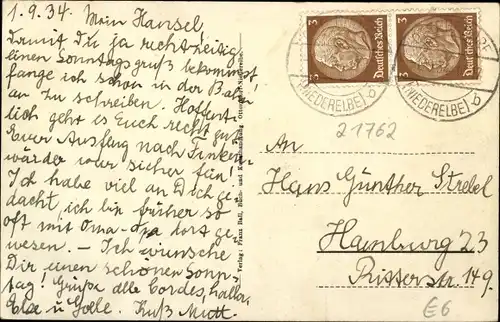 1.9.34. Mein Hansel!
Damit Du ja rechtzeitig
einen Sonntagsgruß bekommst,
fange ich schon in der Bahn
an zu schreiben. Hoffent-
lich geht es Euch recht gut.
Euer Ausflug nach Finken-
wärder war sicher fein!
Ich habe viel an Dich ge-
dacht, ich bin früher so
oft mit Oma-Opa dort ge-
wesen. – Ich wünsche
Dir einen schönen Sonn-
tag! Grüße alle Cordes,
Else u. Kuß Mutti.
Verlag: Franz Ball, Buch- und
3 Deutsches Reich 3 Deutsches Reich
(NIEDERELBE) (NIEDERELBE)
b b
21762
An
Hans Günther Strebel
Hamburg 23
Ritterstr. 149.
E6